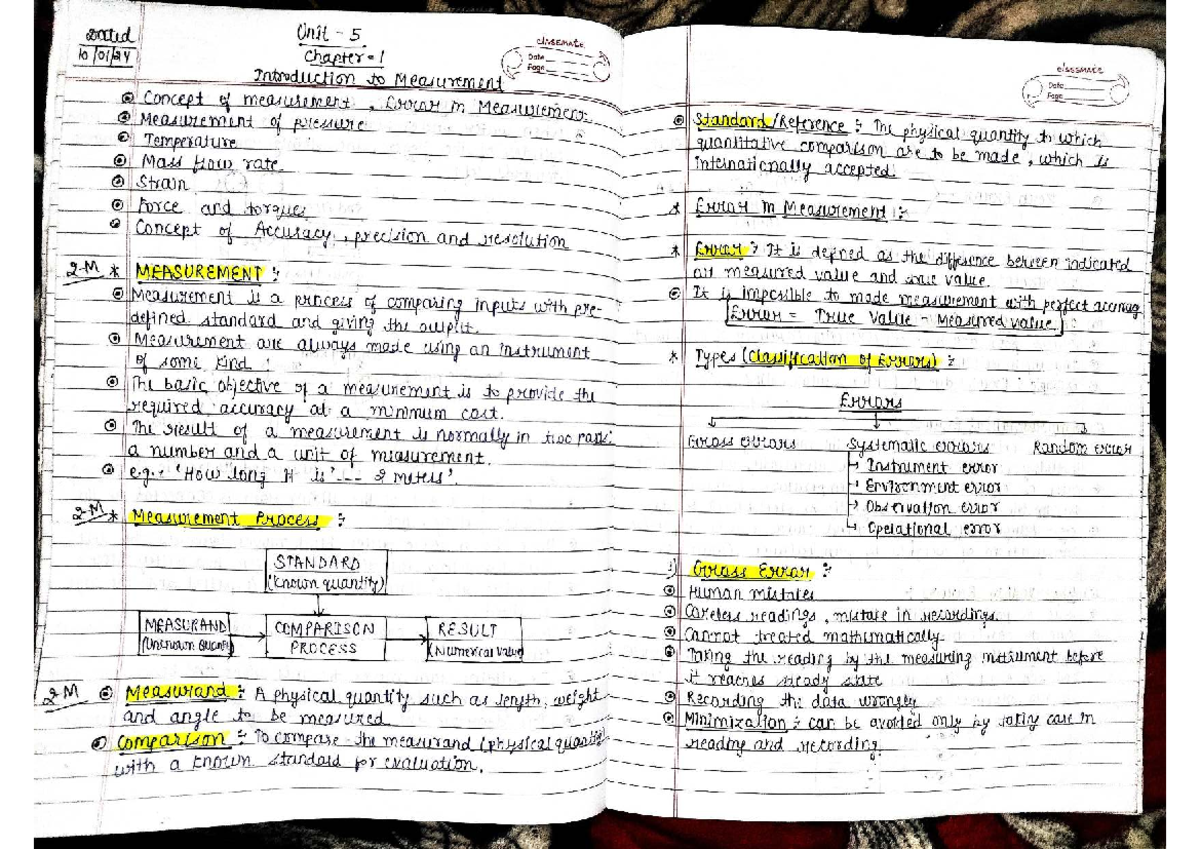 Dated
10/01/24
Unit - 5
Chapter-1
Introduction to Measurement
classmate
Date
Page
Concept of measurement, Error in Measurement
Measurement of pressure
Temperature
Mass flow rate
Strain
Force and torques
Concept of Accuracy, precision and resolution
2-M * MEASUREMENT :-
Measurement is a process of comparing inputs with pre-
defined standard and giving the output.
Measurement are always made using an instrument
of some kind !
The basic objective of a measurement is to provide the
required accuracy at a minimum cost.
The result of a measurement is normally in two parts:
a number and a unit of measurement.
e.g:- 'How long it is' --- 2 meters'.
2-M * Measurement Process :-
STANDARD
(Known quantity)
MEASURAND
(Unknown Quantity)
COMPARISON
PROCESS
RESULT
(Numerical value)
2M Measurand :- A physical quantity such as length, weight
and angle to be measured.
Comparison :- To compare the measurand (physical quantity)
with a known standard for evaluation.
classmate
Date
Page
Standard/Reference :- The physical quantity to which
quantitative comparison are to be made, which is
internationally accepted.
* Error in Measurement :-
* Error :- It is defined as the difference between indicated
or measured value and true value.
It is impossible to made measurement with perfect accuracy
Error = True Value - Measured value
* Types (Classification of Errors) :-
Errors
Gross errors Systematic errors Random error
Instrument error
Environment error
Observation error
Operational error
1) Gross Error :-
Human mistakes
Careless readings, mistake in recordings.
Cannot treated mathematically.
Taking the reading by the measuring instrument before
it reaches steady state
Recording the data wrongly
Minimization :- can be avoided only by taking care in
reading and recording.